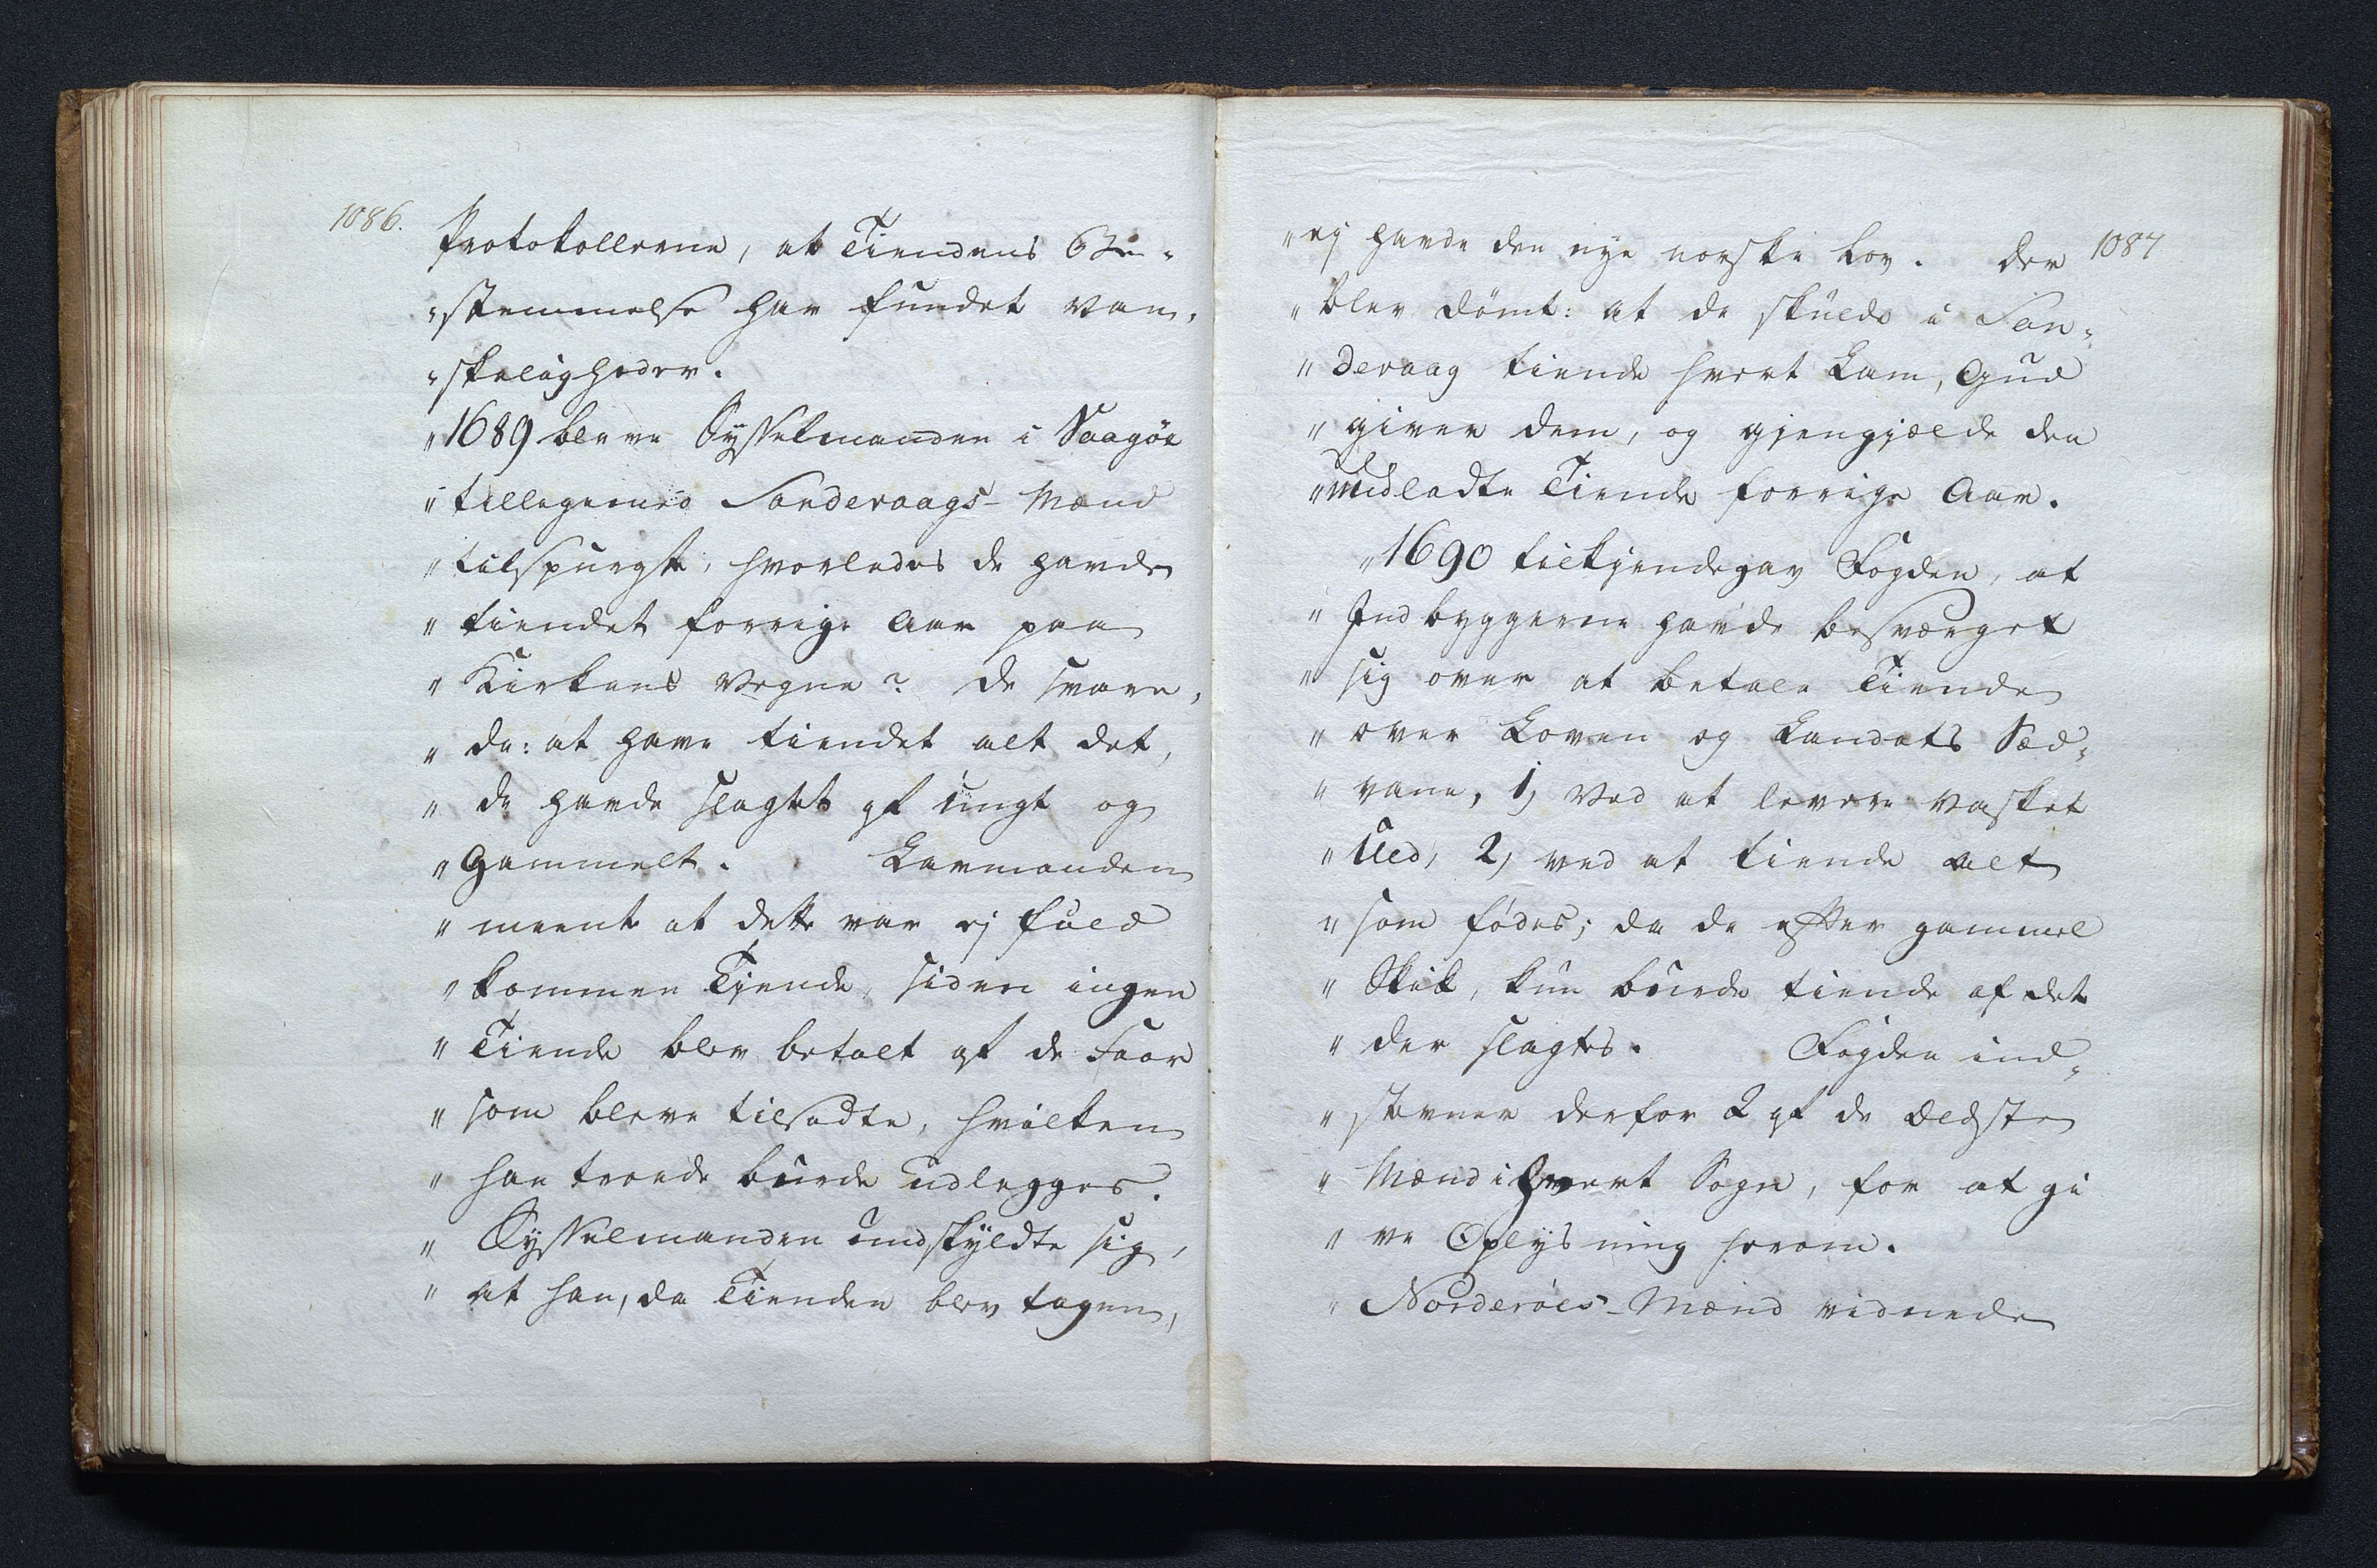 1086.
Protokollerne, at Tiendens Be-
"stemmelse har fundet van-
"skeligheder.
"1689 bleve Sysselmanden i Vaagöe
"tilligemed Sandevaags-Mænd
"tilspurgte, hvorledes de havde
"tiendet forrige Aar paa
"Kirkens Vegne? de svare,
"de: at have tiendet alt det,
"de havde slagtet af ungt og
"Gammelt. Lavmanden
"meente at dette var ej fuld
"kommen Tjende, siden ingen
"Tiende blev betalt af de Faar
"som bleve tilsadte, hvilken
"han troede burde udlegges.
"Sysselmanden undskyldte sig,
"at han, da Tienden blev tagen,
1087
"ej havde den nye norske Lov. Der
"blev dömt: at de skulde i San-
"devaag tiende hvert Lam, Gud
"giver dem, og gjengjælde den
"udeladte Tiende forrige Aar.
"1690 tilkjendegav Fogden, at
"Indbyggerne havde besværget
"sig over at betale Tiende
"over Loven og Landets Sæd-
"vane, 1, Ved at levere vasket
"Uld, 2, ved at tiende alt
"som födes; da de efter gammel
"Skik, kun burde tiende af det
"der slagtes. Fogden ind-
"stevner derfor 2 af de Ældste
"Mænd i hvert Sogn, for at gi
"ve Oplysning herom.
"Norderöes-Mænd vidnede